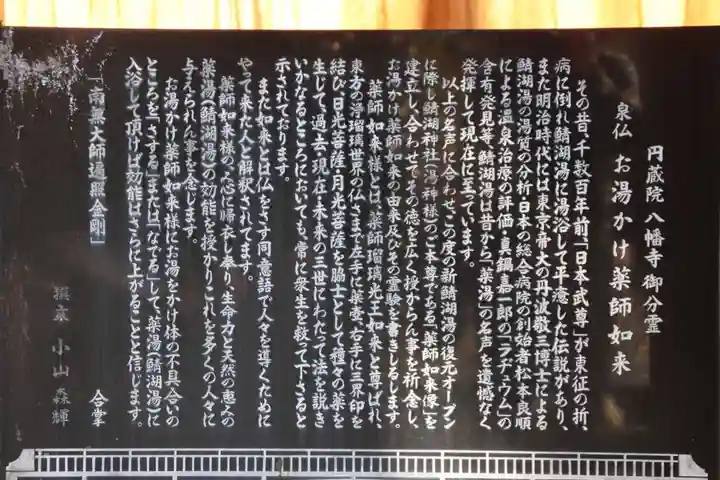 円蔵院 八幡寺 御分霊
泉仏 お湯かけ薬師如来
その昔、千数百年前「日本武尊」が東征の折、
病に倒れ鯖湖湯に湯浴して平癒した伝説があり、
また明治時代には東京帝大の丹波敬三博士による
鯖湖湯の湯質の分析・日本の総合病院の創始者松本良順
による温泉治療の評価・真鍋嘉一郎の「ラヂュウム」の
含有発見等、鯖湖湯は昔から「薬湯」の名声を遺憾なく
発揮して現在に至っています。
以上の名声に合わせ、この度の新鯖湖湯の復元オープン
に際し鯖湖神社(湯神様)のご本尊である「薬師如来像」を
建立し、合わせてその徳を広く授からん事を祈念し、
お湯かけ薬師如来の由来及びその霊験を書きしるします。
薬師如来様とは、薬師瑠璃光王如来と尊ばれ、
東方の浄瑠璃世界の仏さまで左手に薬壺、右手に三界印を
結び、日光菩薩・月光菩薩を脇士として種々の薬を
生じて、過去・現在・未来の三世にわたって法を説き
いかなるところにおいても、常に衆生を救って下さると
示されております。
また如来とは仏をさす同意語で人々を導くために
やって来た人と解釈されてます。
薬師如来様の、心に帰衣し奉り、生命力と天然の恵みの
薬湯(鯖湖湯)の効能を授かりこれを多くの人々に
与えられん事を念じます。
お湯かけ薬師如来様にお湯をかけ体の不具合いの
ところを「さする」または「なでる」して、薬湯(鯖湖湯)に
入浴して頂けば効能はさらに上がることと信じます。
「南無大師遍照金剛」
合掌
撰文 小山森輝